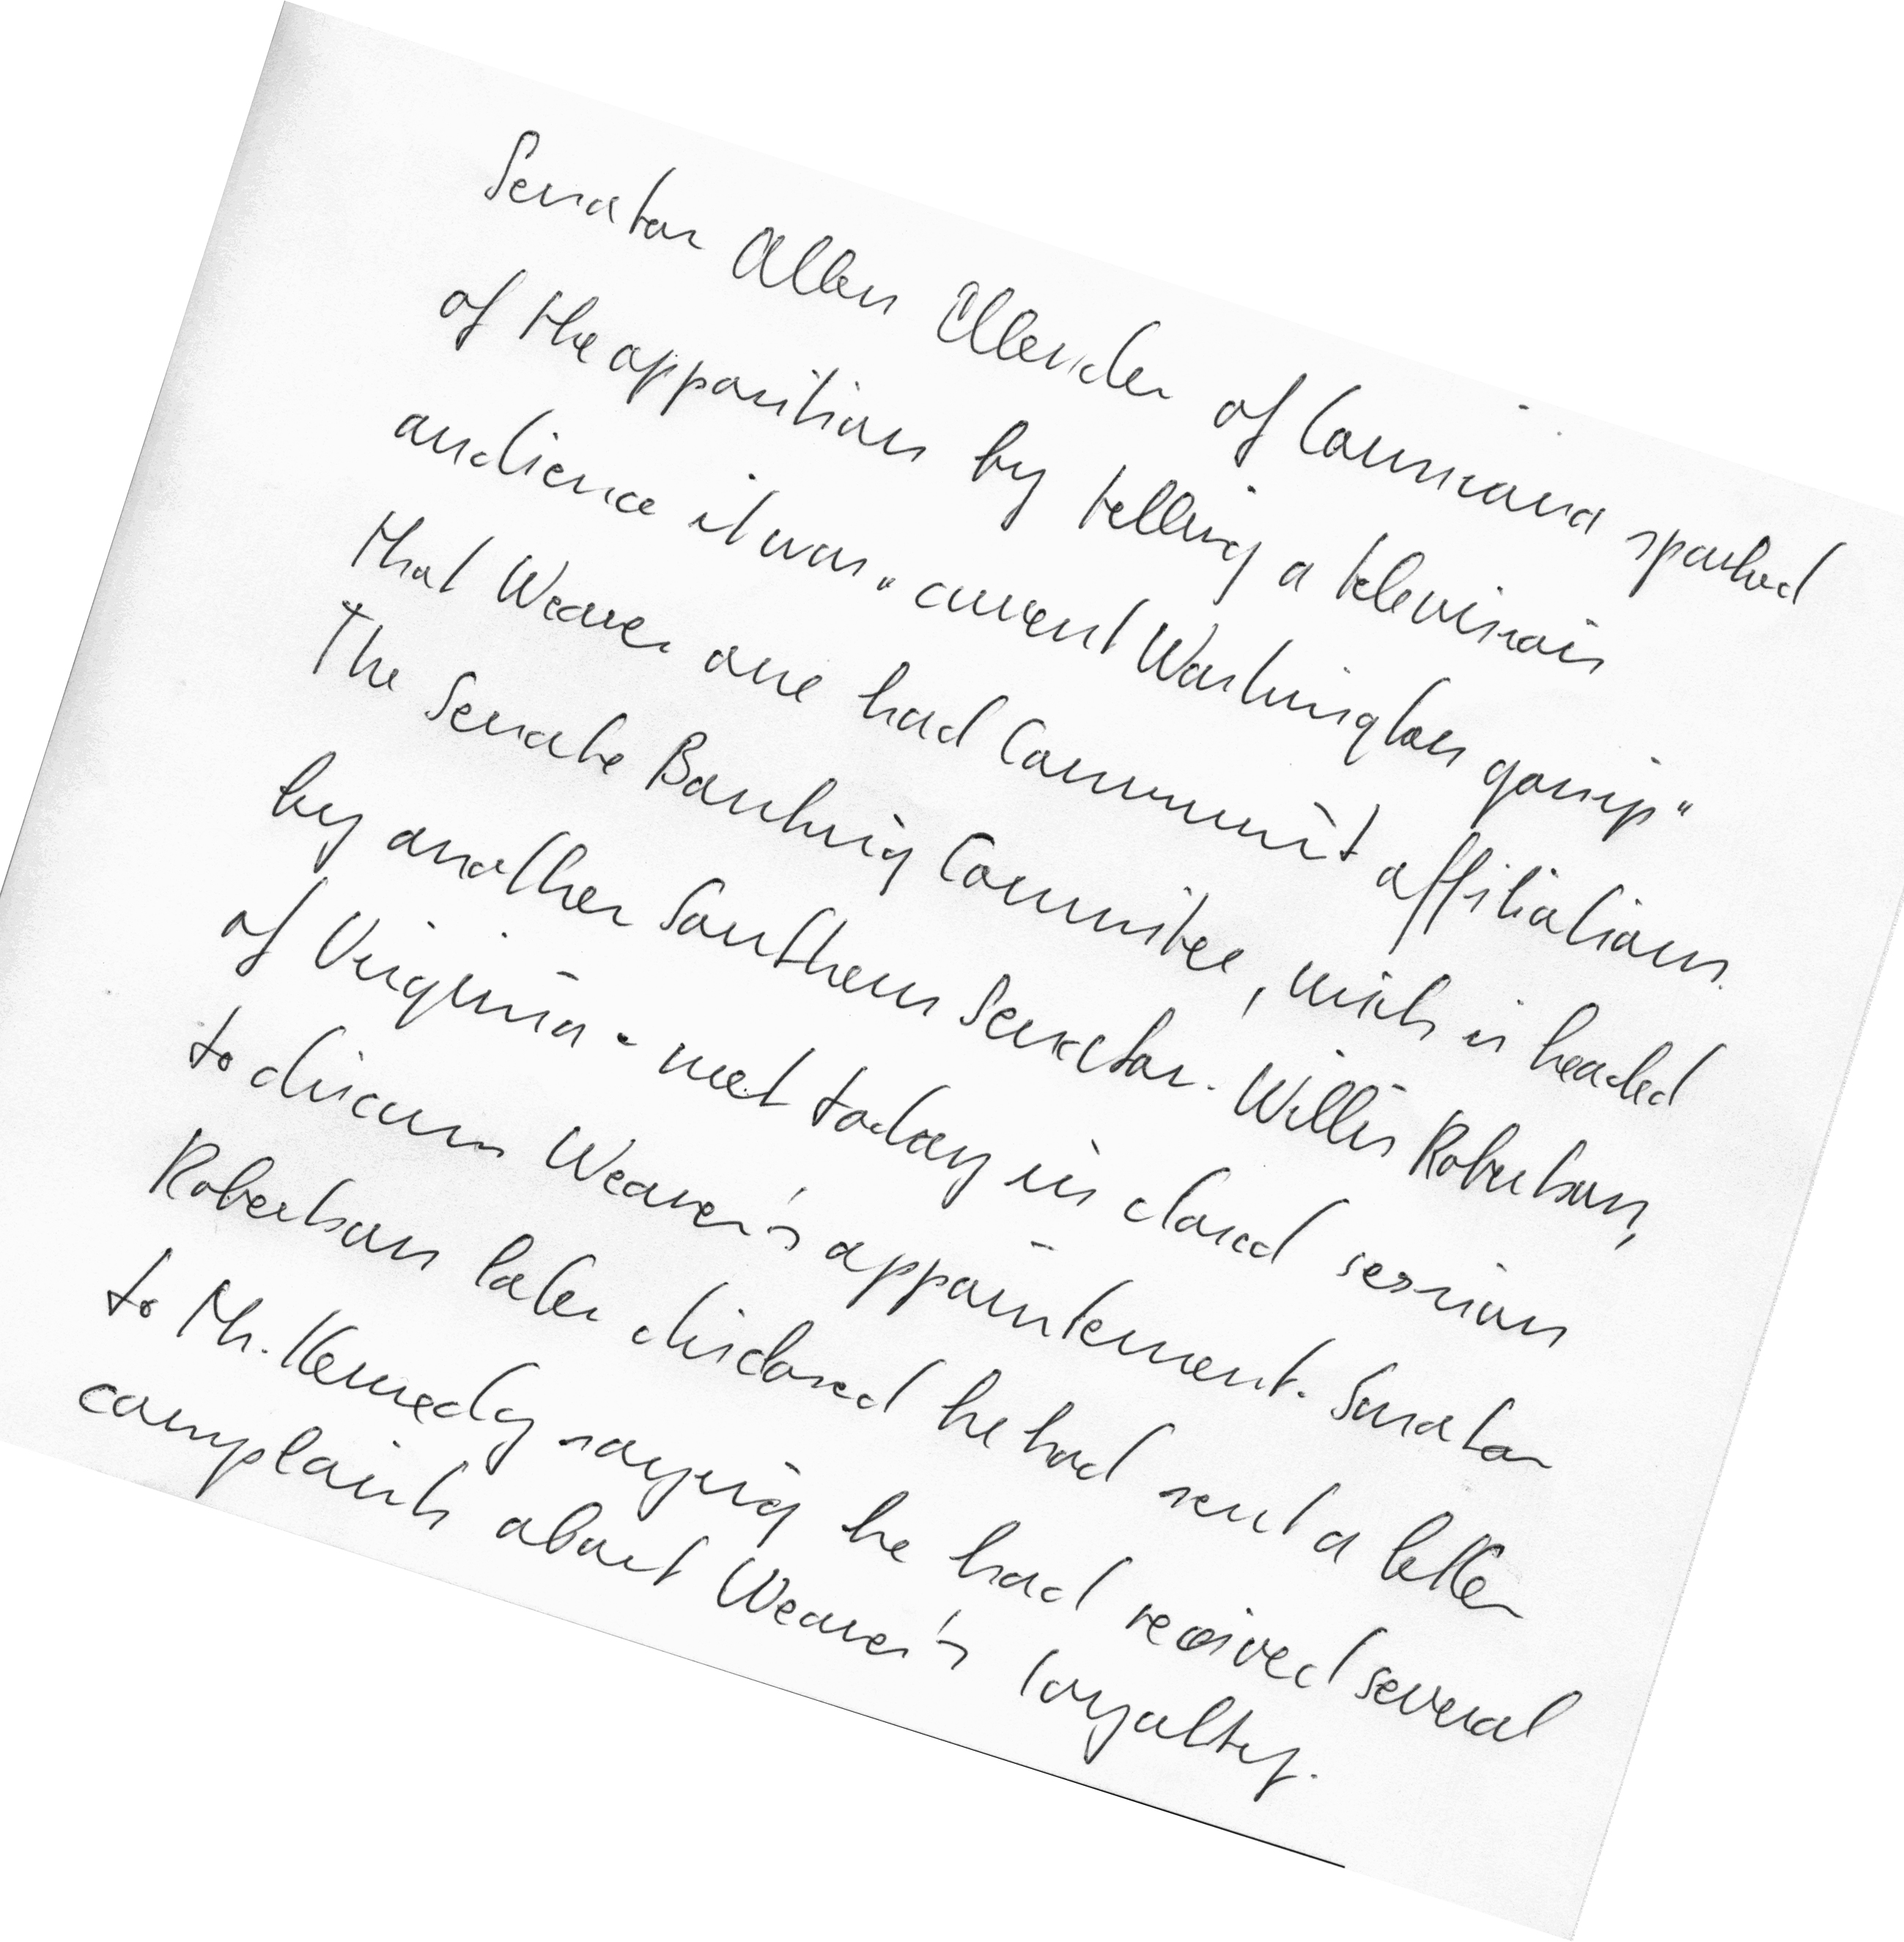 Senator Allen Ellender of Louisiana sparked
of the opposition by telling a television
audience it was "current Washington gossip"
that Weaver one had Communist affiliations.
The Senate Banking Committee, wich is headed
by another Southern Senator - Willis Robertson,
of Virginia - met today in closed session
to discuss Weaver's appointement. Senator
Robertson later disclosed he had sent a letter
to Mr. Kennedy saying he had received several
complaints about Weaver's loyalty.